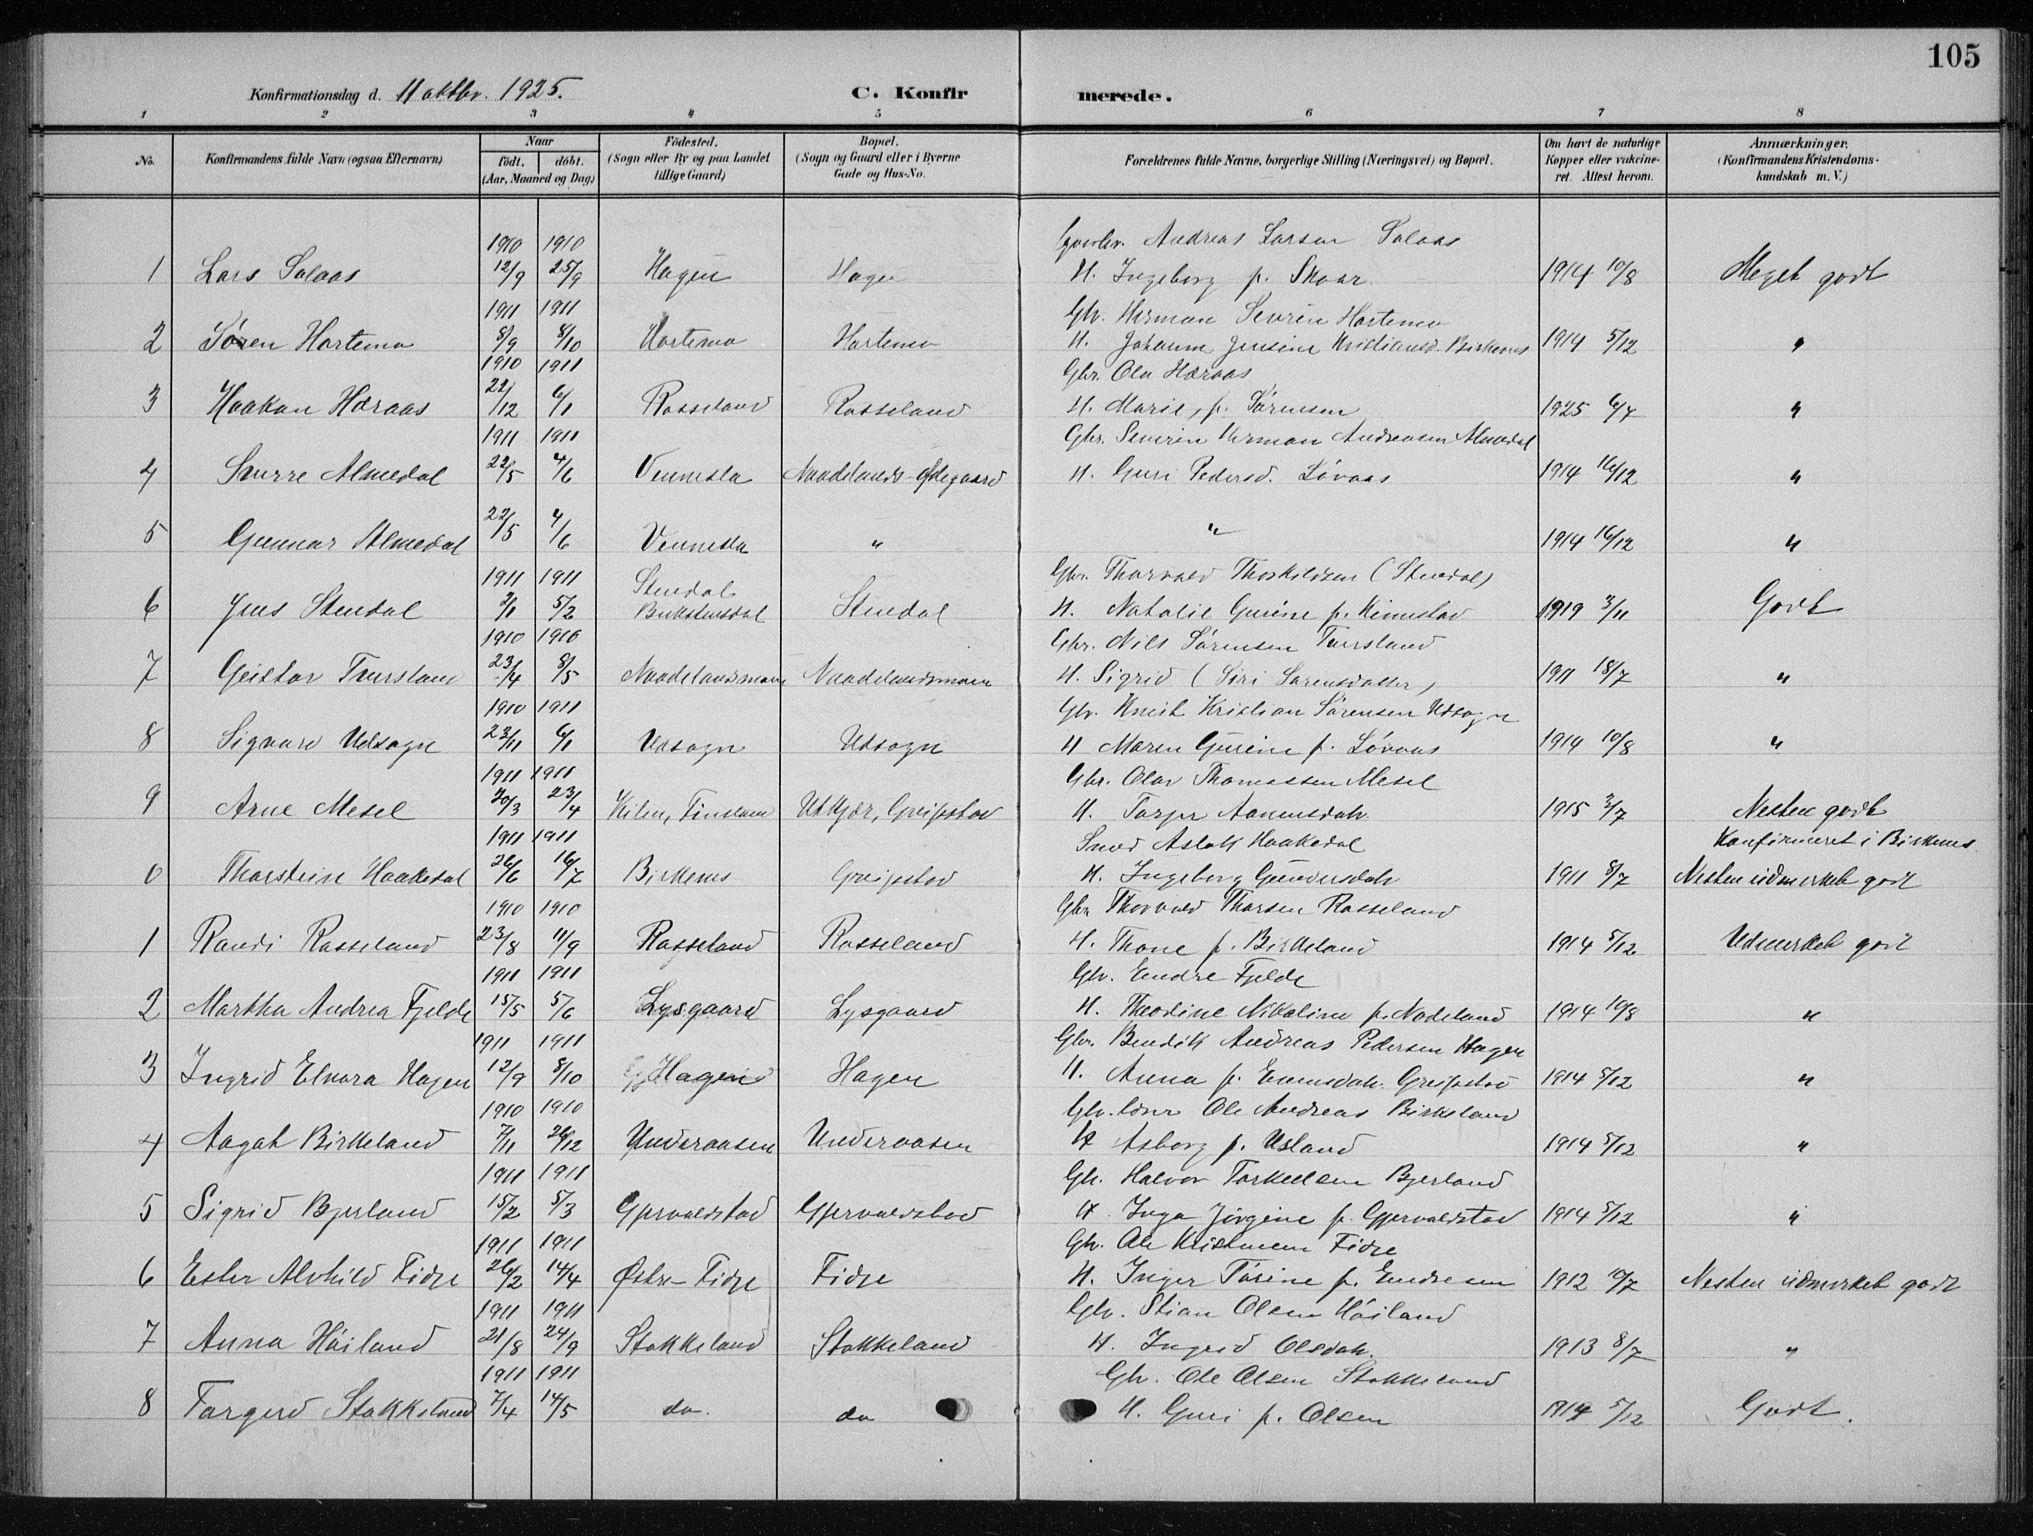 105
Konfirmationsdag d. 11 oktbr. 1925.
C. Konfirmerede.
1 2 3 4 5 6 7 8
No.
Konfirmandens fulde Navn (ogsaa Efternavn)
Naar
födt. döbt.
(Aar, Maaned og Dag)
Födested.
(Sogn eller By og paa Landet
tillige Gaard)
Bopæl.
(Sogn og Gaard eller i Byerne
Gade og Hus-No.
Forældrenes fulde Navne, borgerlige Stilling (Næringsvei) og Bopæl.
Om havt de naturlige
Kopper eller vakcine-
ret. Attest herom.
Anmærkninger.
(Konfirmandens Kristendoms-
kundskab m. V.)
1910 1910 Andreas Larsen Salaas
1 Lars Salaas 12/9 25/9 Hagen Hagen H. Ingeborg f. Skaar 1914 10/8 Meget godt
1911 1911 Gbr. Herman Severin Hortemo
2 Søren Hortemo 8/9 8/10 Hortemo Hortemo H. Johanne Jensine Kristiansd. Birkenes 1914 5/12 "
1910 1911 Gbr. Ola Hæraas
3 Haakon Hæraas 22/12 6/1 Rosseland Rosseland H. Marie, f. Sørensen 1925 6/7 "
1911 1911 Gbr. Severin Herman Andreasen Almedal
4 Snorre Almedal 22/5 4/6 Vennesla Naadelands-Ødegaard H. Guri Pedersd. Løvaas 1914 16/12 "
5 Gunnar Almedal 22/5 4/6 Vennesla " " 1914 16/12 "
1911 1911 Stendal Gbr. Thorvald Thorkildsen (Stendal)
6 Jens Stendal 2/1 5/2 Birkstensdal Stendal H. Natalie Gurine f. Kimestad 1919 3/11 Godt
1910 1910 Gbr. Nils Sørensen Tversland
7 Geistar Tversland 23/4 8/5 Naadelandsmoen Naadelandsmoen H. Sigrid (Siri Sørensdatter) 1911 18/7 "
1910 1911 Gbr. Knut Kristian Sørensen Udsogn
8 Sigvard Udsogn 23/11 6/1 Udsogn Udsogn H Maren Gurine f. Løvaas 1914 10/8 "
1911 1911 Gbr. Olav Thomassen Mesel
9 Arne Mesel 20/3 23/4 Kilen, Finsland Utkjær, Greipstad H. Torjer Aanensdatr. 1915 3/7 Nesten godt
1911 1911 Smed Aslak Haakedal Konfirmeret i Birkenes.
0 Thorstein Haakedal 26/6 16/7 Birkenes Greipstad H. Ingeborg Gundersdatr. 1911 8/7 Nesten udmerket godt
1910 1910 Gbr. Thorvald Tharsen Rosseland
1 Randi Rosseland 23/8 11/9 Rosseland Rosseland H. Thone f. Birkeland 1914 5/12 Udmerket godt
1911 1911 Gbr. Endre Fjelde
2 Martha Andrea Fjelde 15/5 5/6 Lysgaard Lysgaard H. Theodine Nikoline f. Nodeland 1914 10/8 "
1911 1911 Gbr. Bendik Andreas Pedersen Hagen
3 Ingrid Elvora Hagen 12/9 8/10 Hagen Hagen H. Anna f. Evensdatr. Greipstad 1914 5/12 "
1910 1910 Ole Andreas Birkeland
4 Aagot Birkeland 7/11 26/12 Underaasen Underaasen H Asborg f. Usland 1914 5/12 "
1911 1911 Gbr. Halvor Torkelsen Bjerland
5 Sigrid Bjerland 15/2 5/3 Gjervaldstad Gjervaldstad H. Inga Jørgine f. Gjervaldstad 1914 5/12 "
1911 1911 Gbr. Ole Kristensen Fidje
6 Ester Alvhild Fidje 26/2 14/4 Østre-Fidje Fidje H. Inger Tørine f. Endresen 1912 10/7 Nesten udmerket godt
1911 1911 Gbr. Stian Olsen Høiland
7 Anna Høiland 21/8 24/9 Stokkeland Stokkeland H. Ingrid Olsdatr. 1913 8/7 "
1911 1911 Gbr. Ole Olsen Stokkeland
8 Torgerd Stokkeland 7/4 14/5 do. do H. Guri f. Olsen 1914 5/12 Godt.